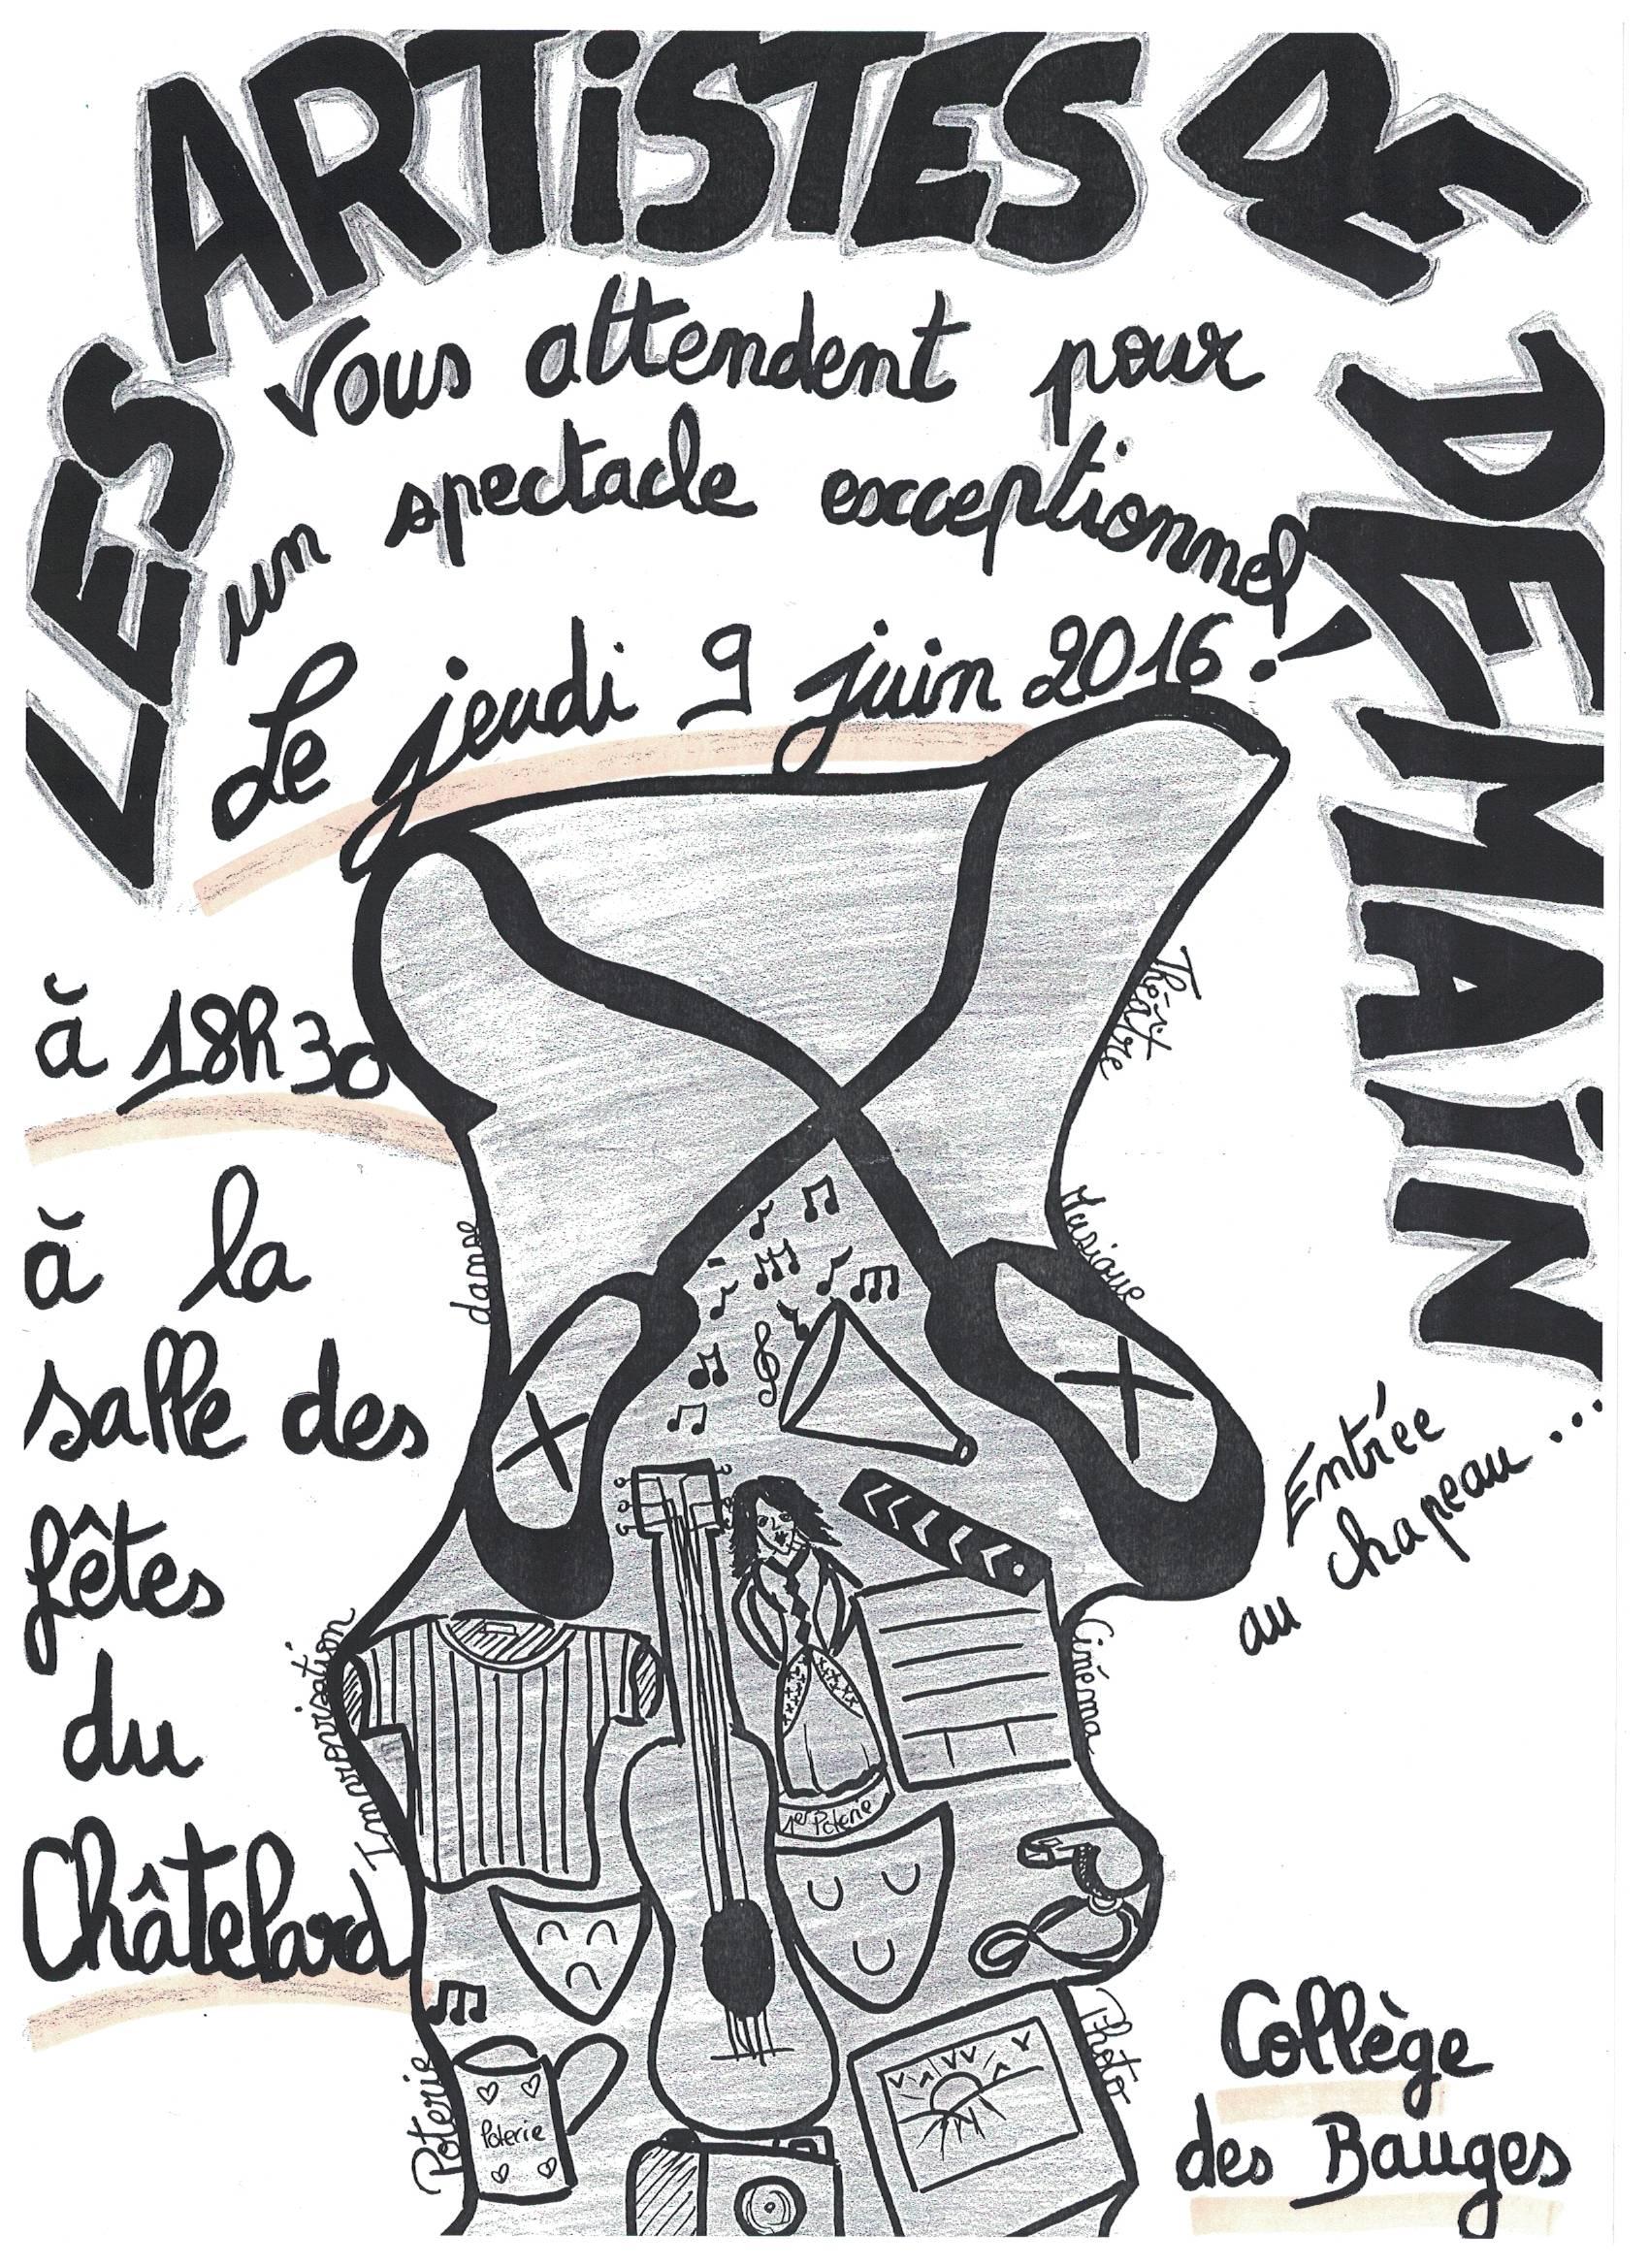 LES ARTiSTES DE DEMAiN
Vous attendent pour
un spectacle exceptionnel!
Le jeudi 9 juin 2016!
à 18h30
à la
salle des
fêtes
du
Châtelard
Théâtre
danse
Musique
Improvisation
Cinéma
1er Poterie
Poterie
Poterie
Photo
Entrée
au chapeau ...
Collège
des Bauges